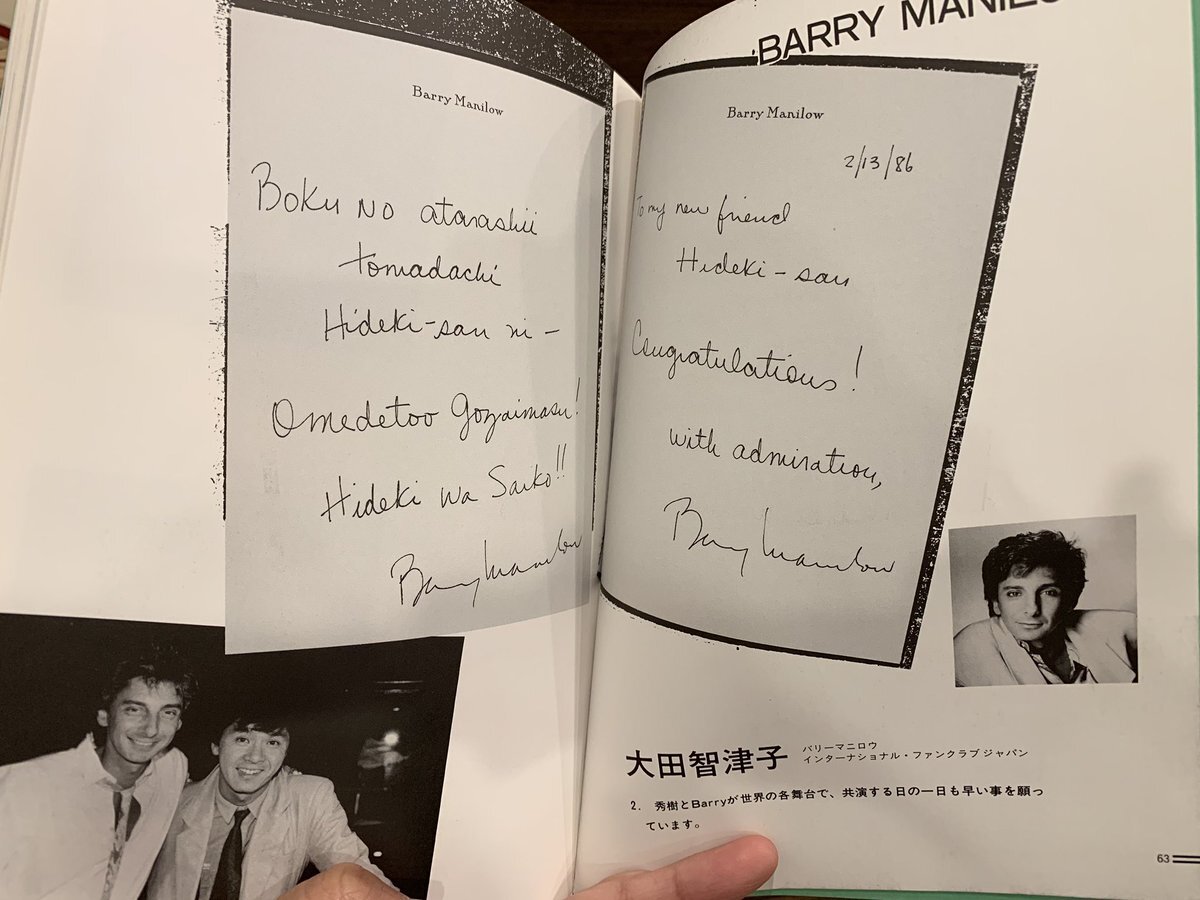 Barry Manilow
Boku no atarashii
tomadachi
Hideki-san ni –
Omedetoo gozaimasu!
Hideki wa Saiko!!
Barry Manilow
BARRY MANILO
Barry Manilow
2/13/86
To my new friend
Hideki-san
Congratulations!
with admiration,
Barry Manilow
大田智津子
バリーマニロウ
インターナショナル・ファンクラブジャパン
2. 秀樹とBarryが世界の各舞台で、共演する日の一日も早い事を願っ
ています。
63